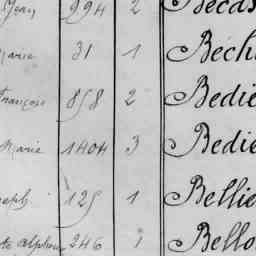 Jean 294 2 Becas
Marie 31 1 Béch
François 858 2 Bedie
Marie 1404 3 Bedie
seph 125 1 Bellie
te alphonse 246 1 Bello